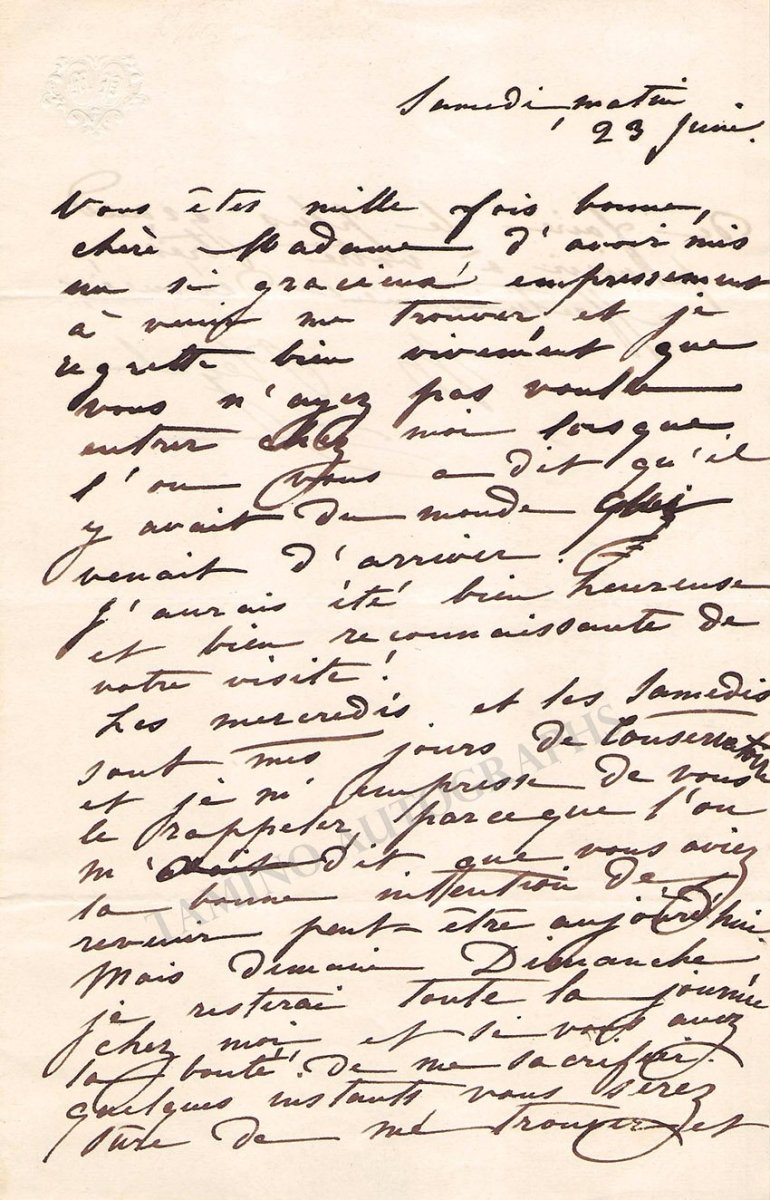 Samedi matin
23 juin.
Vous êtes mille fois bonne,
chère Madame, d'avoir mis
un si gracieux empressement
à venir me trouver, et je
regrette bien vivement que
vous n'ayez pas voulu
entrer chez moi lorsque
l'on vous a dit qu'il
y avait du monde qui
venait d'arriver.
J'aurais été bien heureuse
et bien reconnaissante de
votre visite!
Les mercredis et les Samedis
sont mes jours de Conservatoire
et je m'empresse de vous
le rappeler, parceque l'on
m'avait dit que vous aviez
la bonne intention de
revenir peut-être aujourd'hui.
Mais demain Dimanche
je resterai toute la journée
chez moi et si vous avez
la bonté de me sacrifier
quelques instants vous serez
sûre de me trouver et
TAMINO AUTOGRAPHS